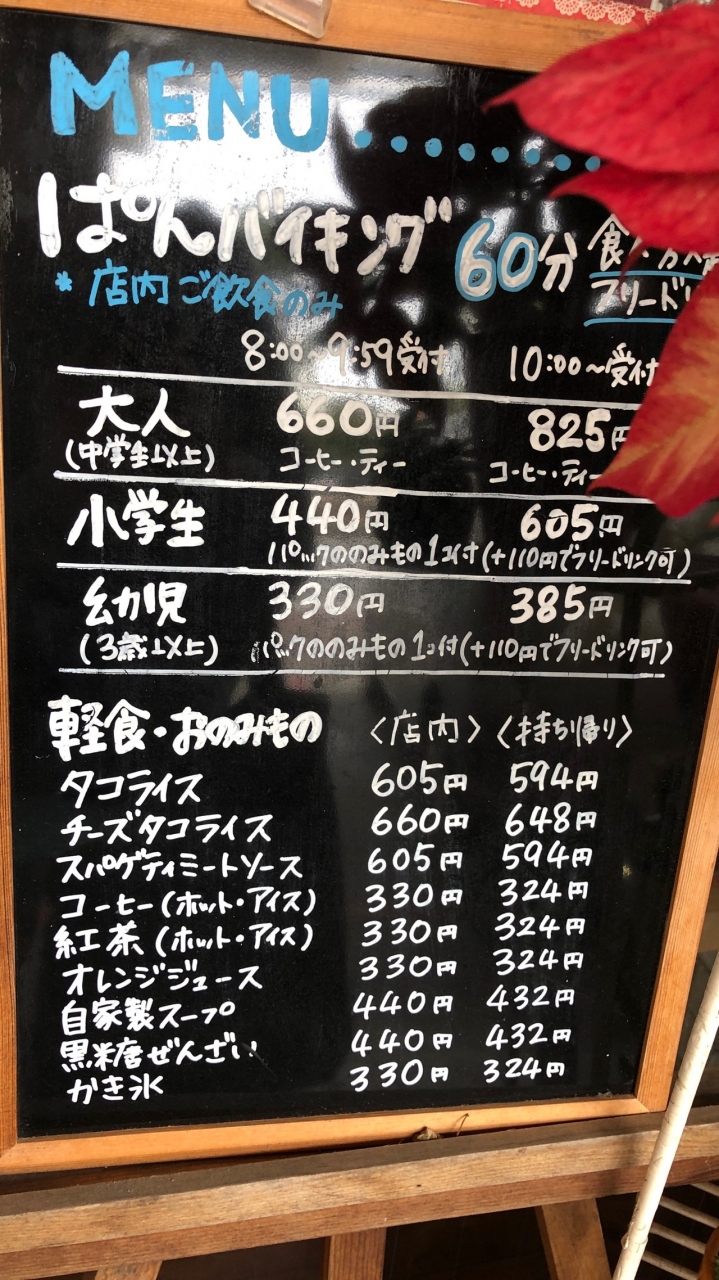 MENU.........
ぱんバイキング 60分
フリード
*店内ご飲食のみ
8:00~9:59受付 10:00~受付
大人 660円 825円
(中学生以上) コーヒー・ティー コーヒー・ティー
小学生 440円 605円
パックののみもの1コ付(+110円でフリードリンク可)
幼児 330円 385円
(3歳以上) パックののみもの1コ付(+110円でフリードリンク可)
軽食・おのみもの 〈店内〉〈持ち帰り〉
タコライス 605円 594円
チーズタコライス 660円 648円
スパゲティミートソース 605円 594円
コーヒー(ホット・アイス) 330円 324円
紅茶(ホット・アイス) 330円 324円
オレンジジュース 330円 324円
自家製スープ 440円 432円
黒糖ぜんざい 440円 432円
かき氷 330円 324円